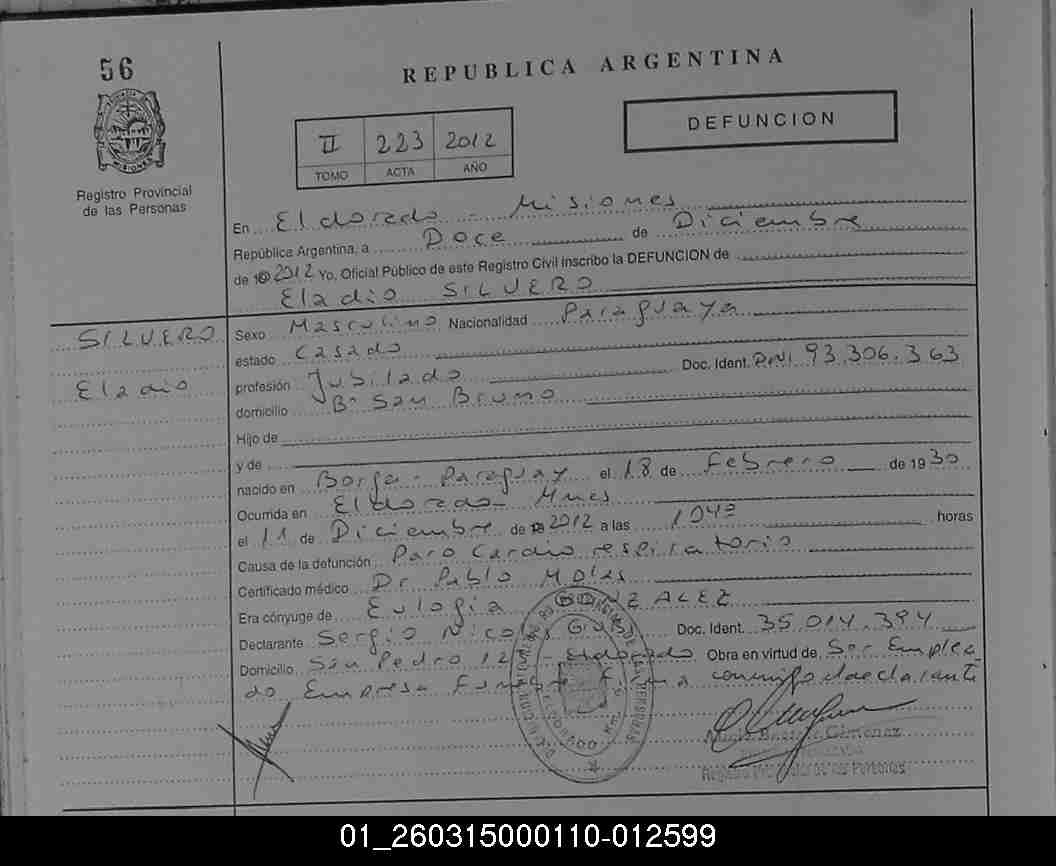 56
REPUBLICA ARGENTINA
DEFUNCION
II 223 2012
TOMO ACTA AÑO
Registro Provincial
de las Personas
En Eldorado - Misiones
República Argentina, a Doce de Diciembre
de 2012 Yo, Oficial Público de este Registro Civil inscribo la DEFUNCION de
Eladio SILVERO
SILVERO
Eladio
Sexo Masculino Nacionalidad Paraguaya
estado Casado
profesión Jubilado Doc. Ident. DNI 93.306.363
domicilio Bº San Bruno
Hijo de
y de
nacido en Borja - Paraguay el 18 de Febrero de 1930
Ocurrida en Eldorado - Mnes
el 11 de Diciembre de 2012 a las horas
Causa de la defunción Paro Cardio respiratorio
Certificado médico Dr Pablo
Era cónyuge de Eulogia GONZALEZ
Declarante Sergio Doc. Ident. 35.014.394
Domicilio San Pedro 12 - Eldorado Obra en virtud de Ser Emplea
do Empresa Firma conmigo declarante
Registro Provincial de las Personas
01_260315000110-012599